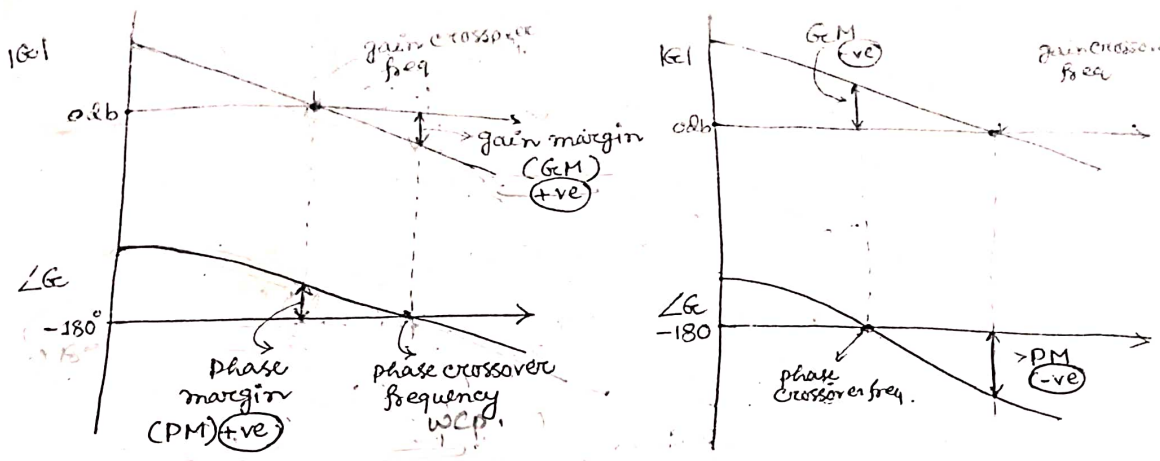 |G|
gain crossover
freq
0db
gain margin
(GM)
+ve
∠G
-180°
phase
margin
(PM) +ve
phase crossover
frequency
WCP.
|G|
GM
-ve
gain crossover
freq
0db
∠G
-180
phase
crossover freq.
PM
-ve